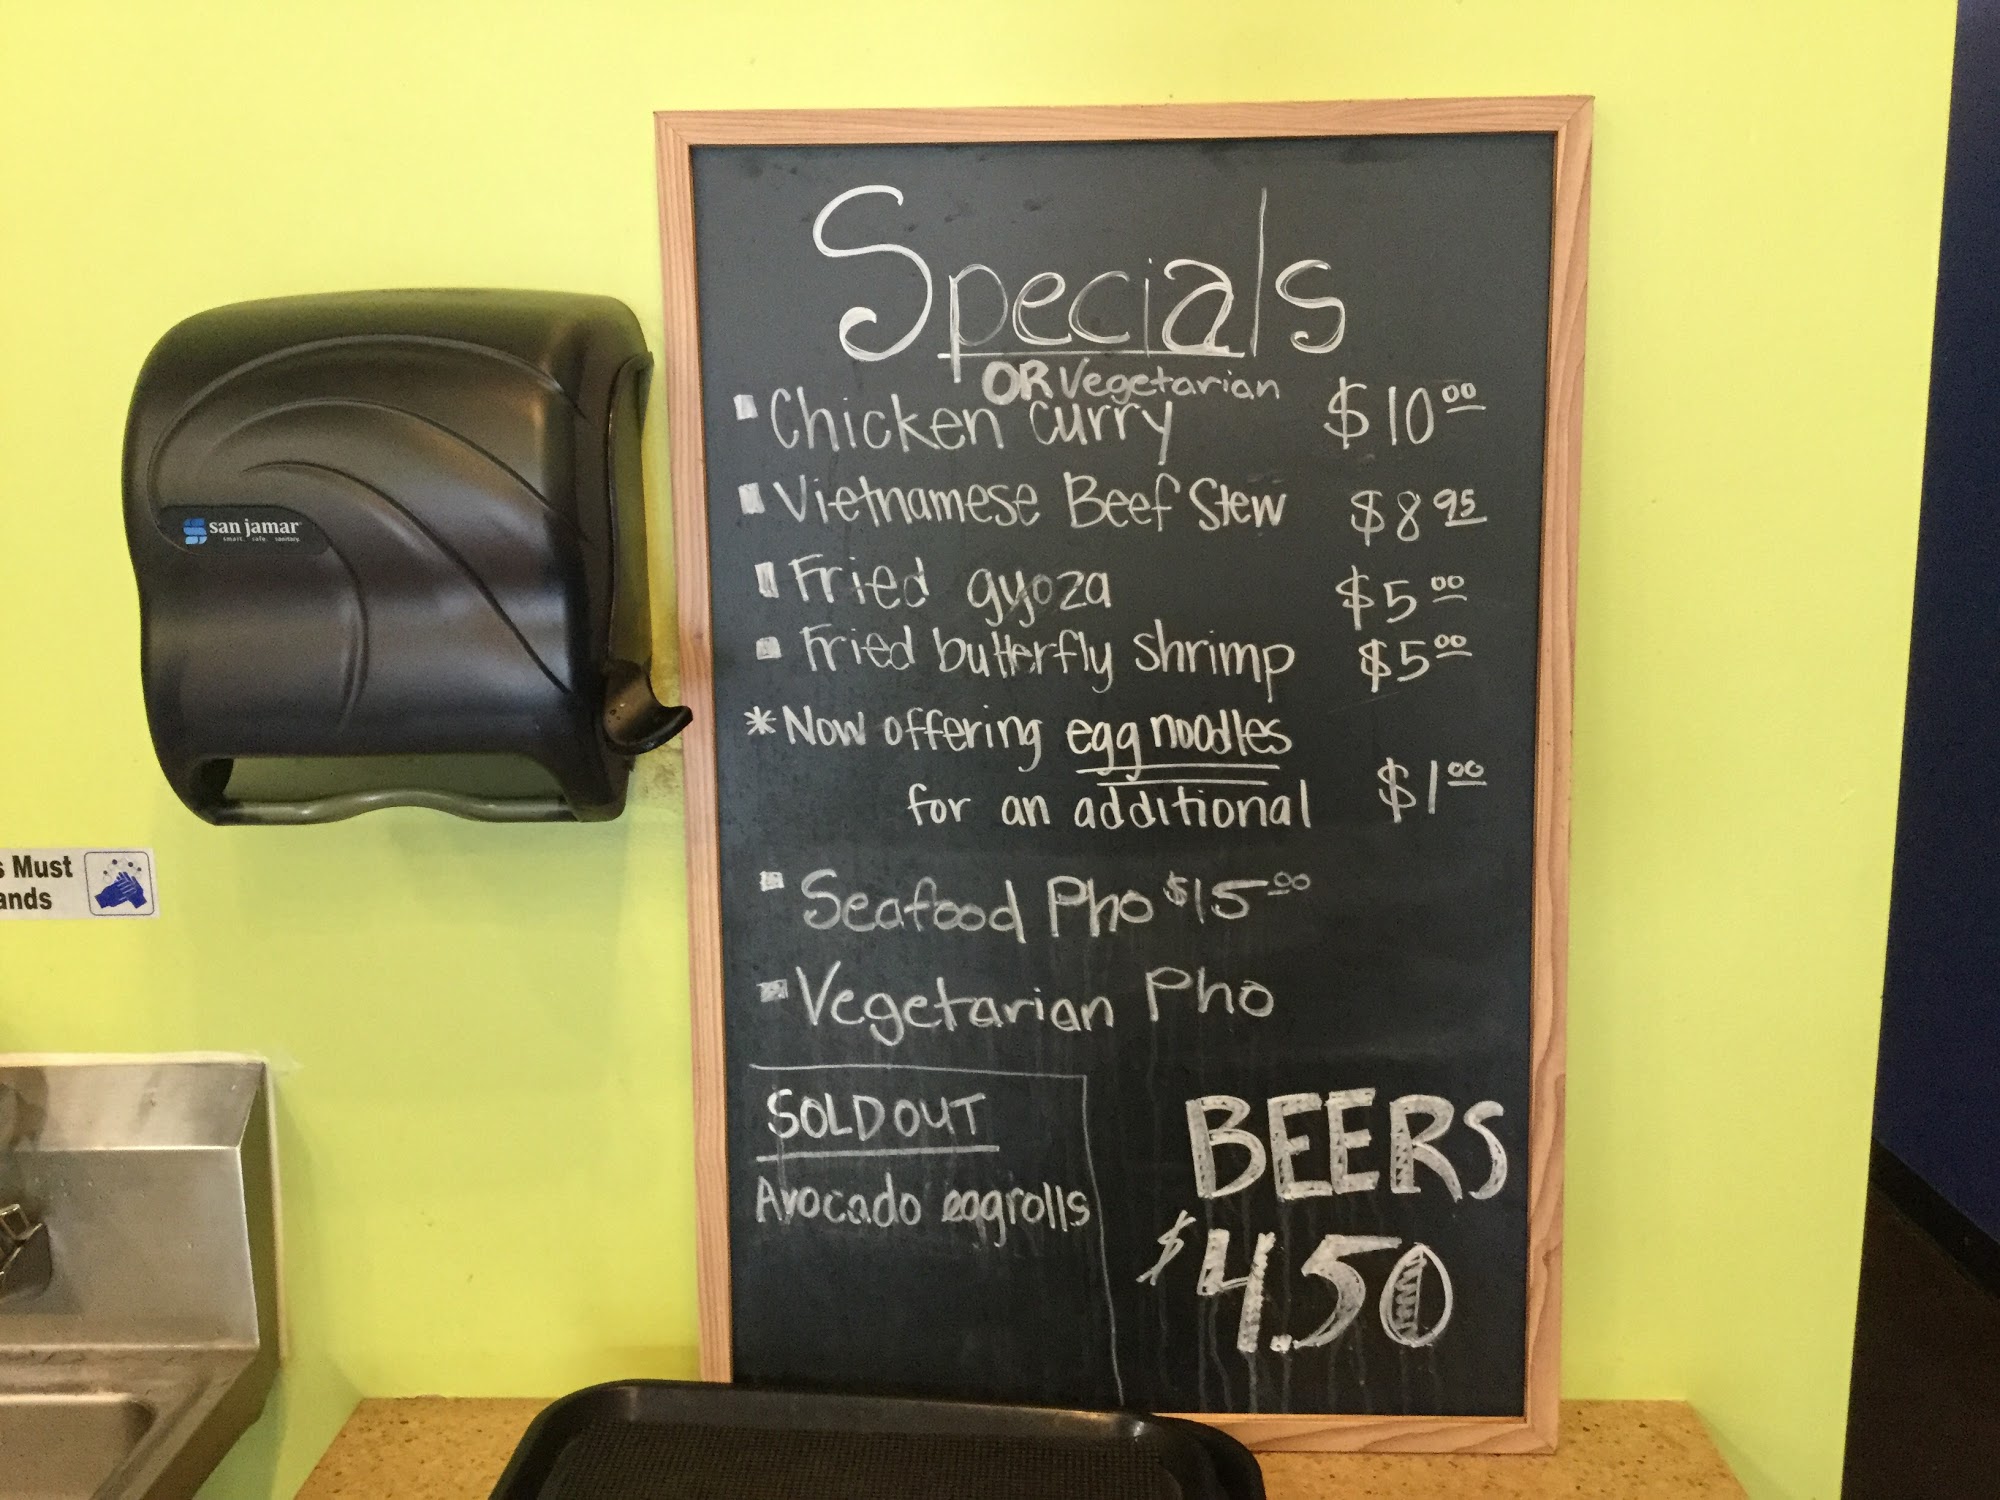 san jamar
smart. safe. sanitary.
s Must
ands
Specials
OR Vegetarian
Chicken Curry $10.00
Vietnamese Beef Stew $8.95
Fried gyoza $5.00
Fried butterfly shrimp $5.00
*Now offering egg noodles
for an additional $1.00
Seafood Pho $15.00
Vegetarian Pho
SOLD OUT
Avocado eggrolls
BEERS
$4.50